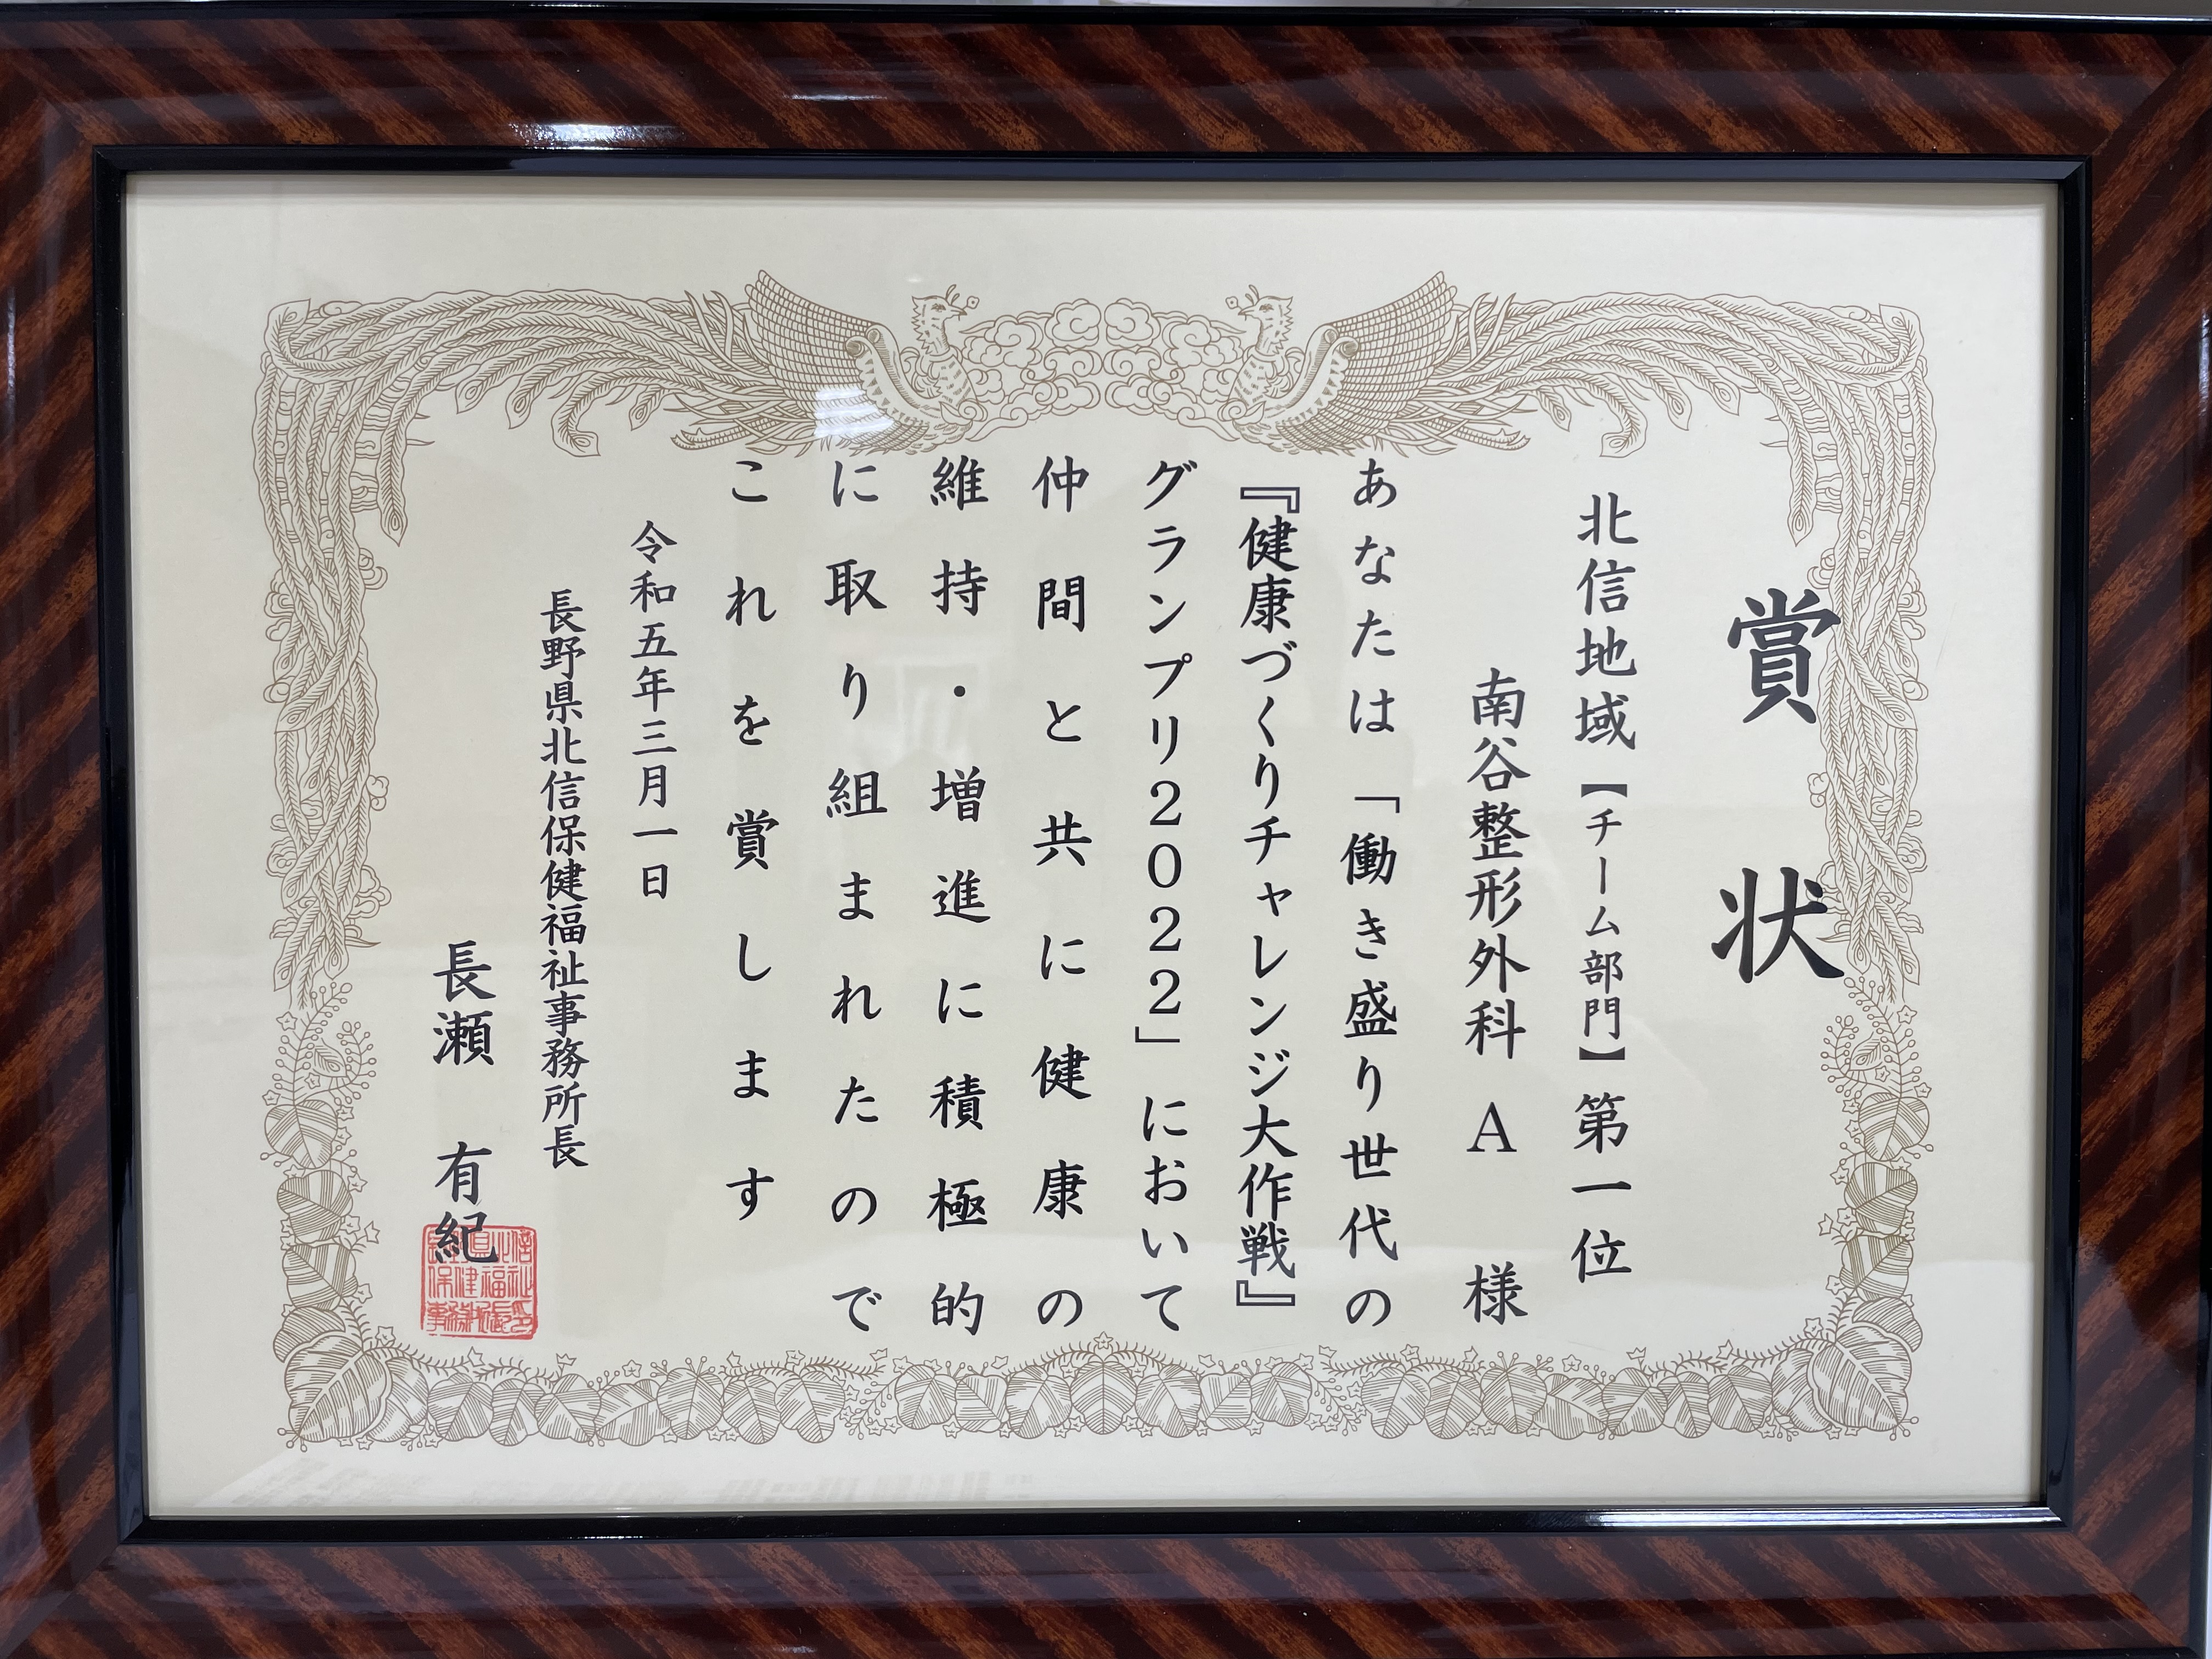 賞状
北信地域【チーム部門】第一位
南谷整形外科 A 様
あなたは「働き盛り世代の
『健康づくりチャレンジ大作戦』
グランプリ2022」において
仲間と共に健康の
維持・増進に積極的
に取り組まれたので
これを賞します
令和五年三月一日
長野県北信保健福祉事務所長
長瀬 有紀